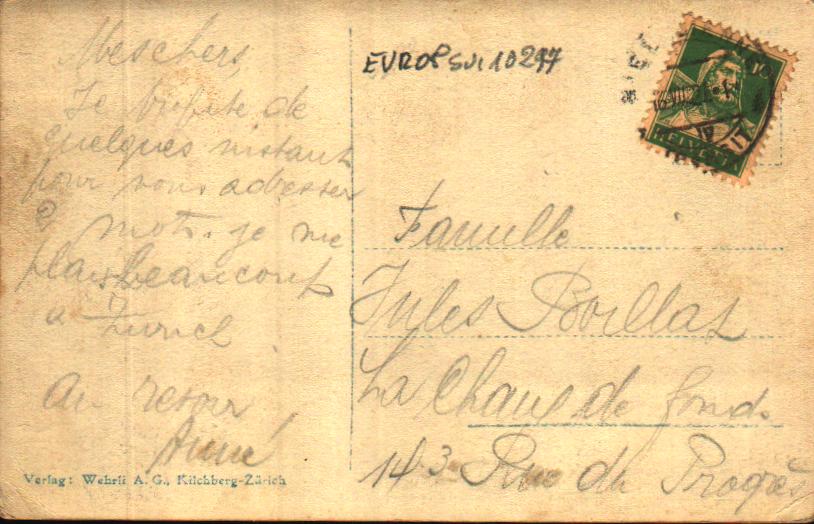 Meschers,
Je profite de
quelques instant
pour vous adresser
2 mots. je me
plais beaucoup
a Zurich
Au revoir
Aimé
Verlag: Wehrli A. G., Kilchberg-Zürich
EUROPSUI10297
10
HELVETIA
Famille
Jules Boillat
La Chaux de fonds.
143 Rue du Progès